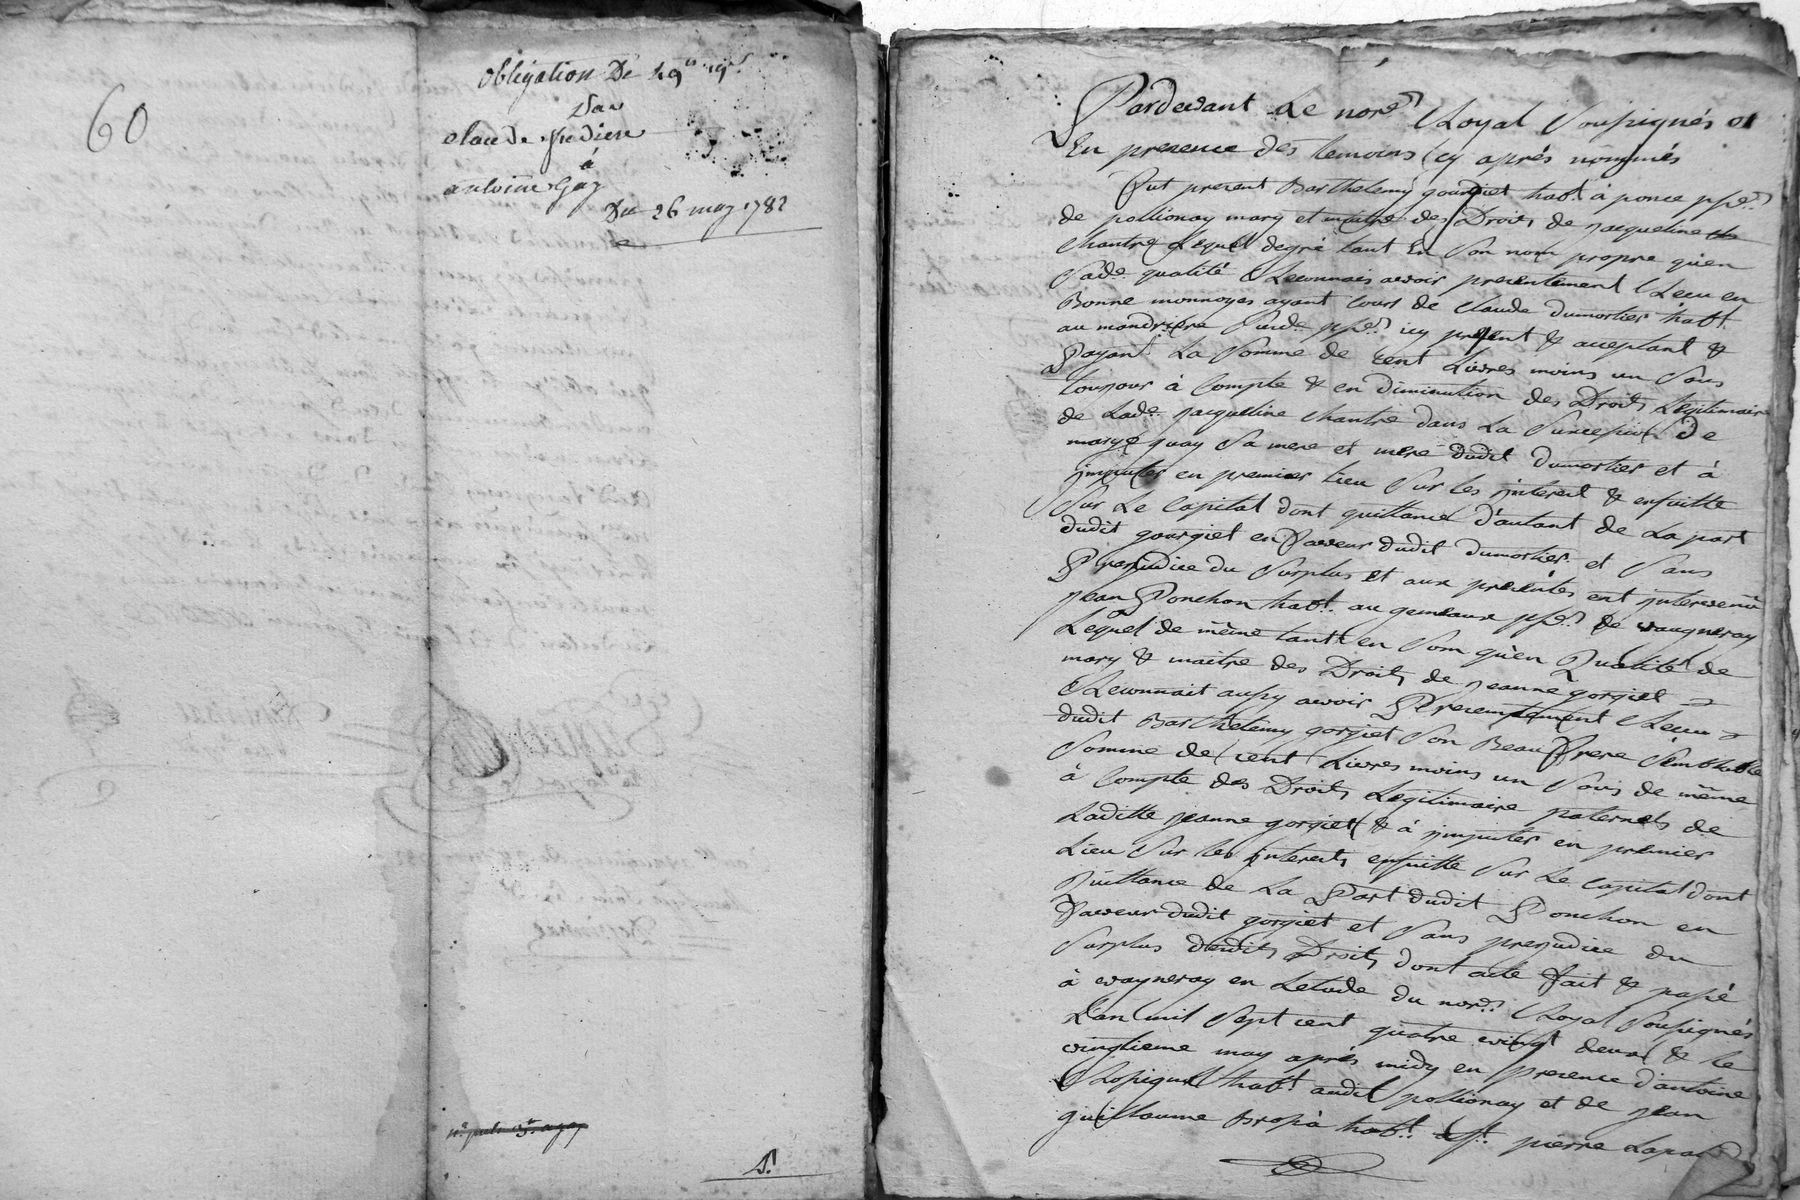 60
obligation De 49ᵗᵗ 19ˢ
Par
claude
à
antoine Gay
Du 26 may 1782
S.
Pardevant Le norᵉ Royal Soussignés et
En presence des temoins cy aprés nommés
Fut present Barthelemy gourgiet habᵗ à ponce ppᵉ
de pollionay mary et maitre des Droits de jacqueline
chantre Lequel degré tant En Son nom propre qu'en
Sade qualité Reconnais avoir presentement Receu en
Bonne monnoyes ayant Cours de Claude dumortier habᵗ
au mandriere Susdᵉ ppᵉ icy present & acceptant &
Payant La Somme de cent Livres moins un Sous
toujour à Compte & en diminution des Droits Legitimaire
de Lade jacqueline chantre dans La Succession De
marye quay Sa mere et mere dudit dumortier et à
jmputer en premier lieu Sur les jnterest & ensuitte
Sur Le Capital dont quittance d'autant de La part
dudit gourgiet en faveur dudit dumortier et Sans
Prejudice du Surplus et aux presentes est intervenû
jean Ponchon habᵗ au gemeaux ppᵉ de vaugneray
Lequel de même tant en Son qu'en Qualité de
mary & maitre des Droits de jeanne gorgiet
Reconnait aussy avoir Presentement Receu
dudit Barthelemy gorgiet Son Beau frere Semblable
Somme de cent Livres moins un Sous de même
à Compte des Droits Legitimaire paternels de
Laditte jeanne gorgiet & à jmputer en premier
Lieu Sur les jnterests ensuitte Sur Le Capital dont
Quittance de La Part dudit Ponchon en
faveur dudit gorgiet et Sans prejudice du
Surplus desdits Droits dont acte fait & passé
à vaugneray en Letude du norᵉ Royal Soussignés
L'an mil Sept cent quatre vingt deux & le
vingtieme may aprés midy en presence d'antoine
habᵗ audit pollionay et de jean
guillaume habᵗ pierre